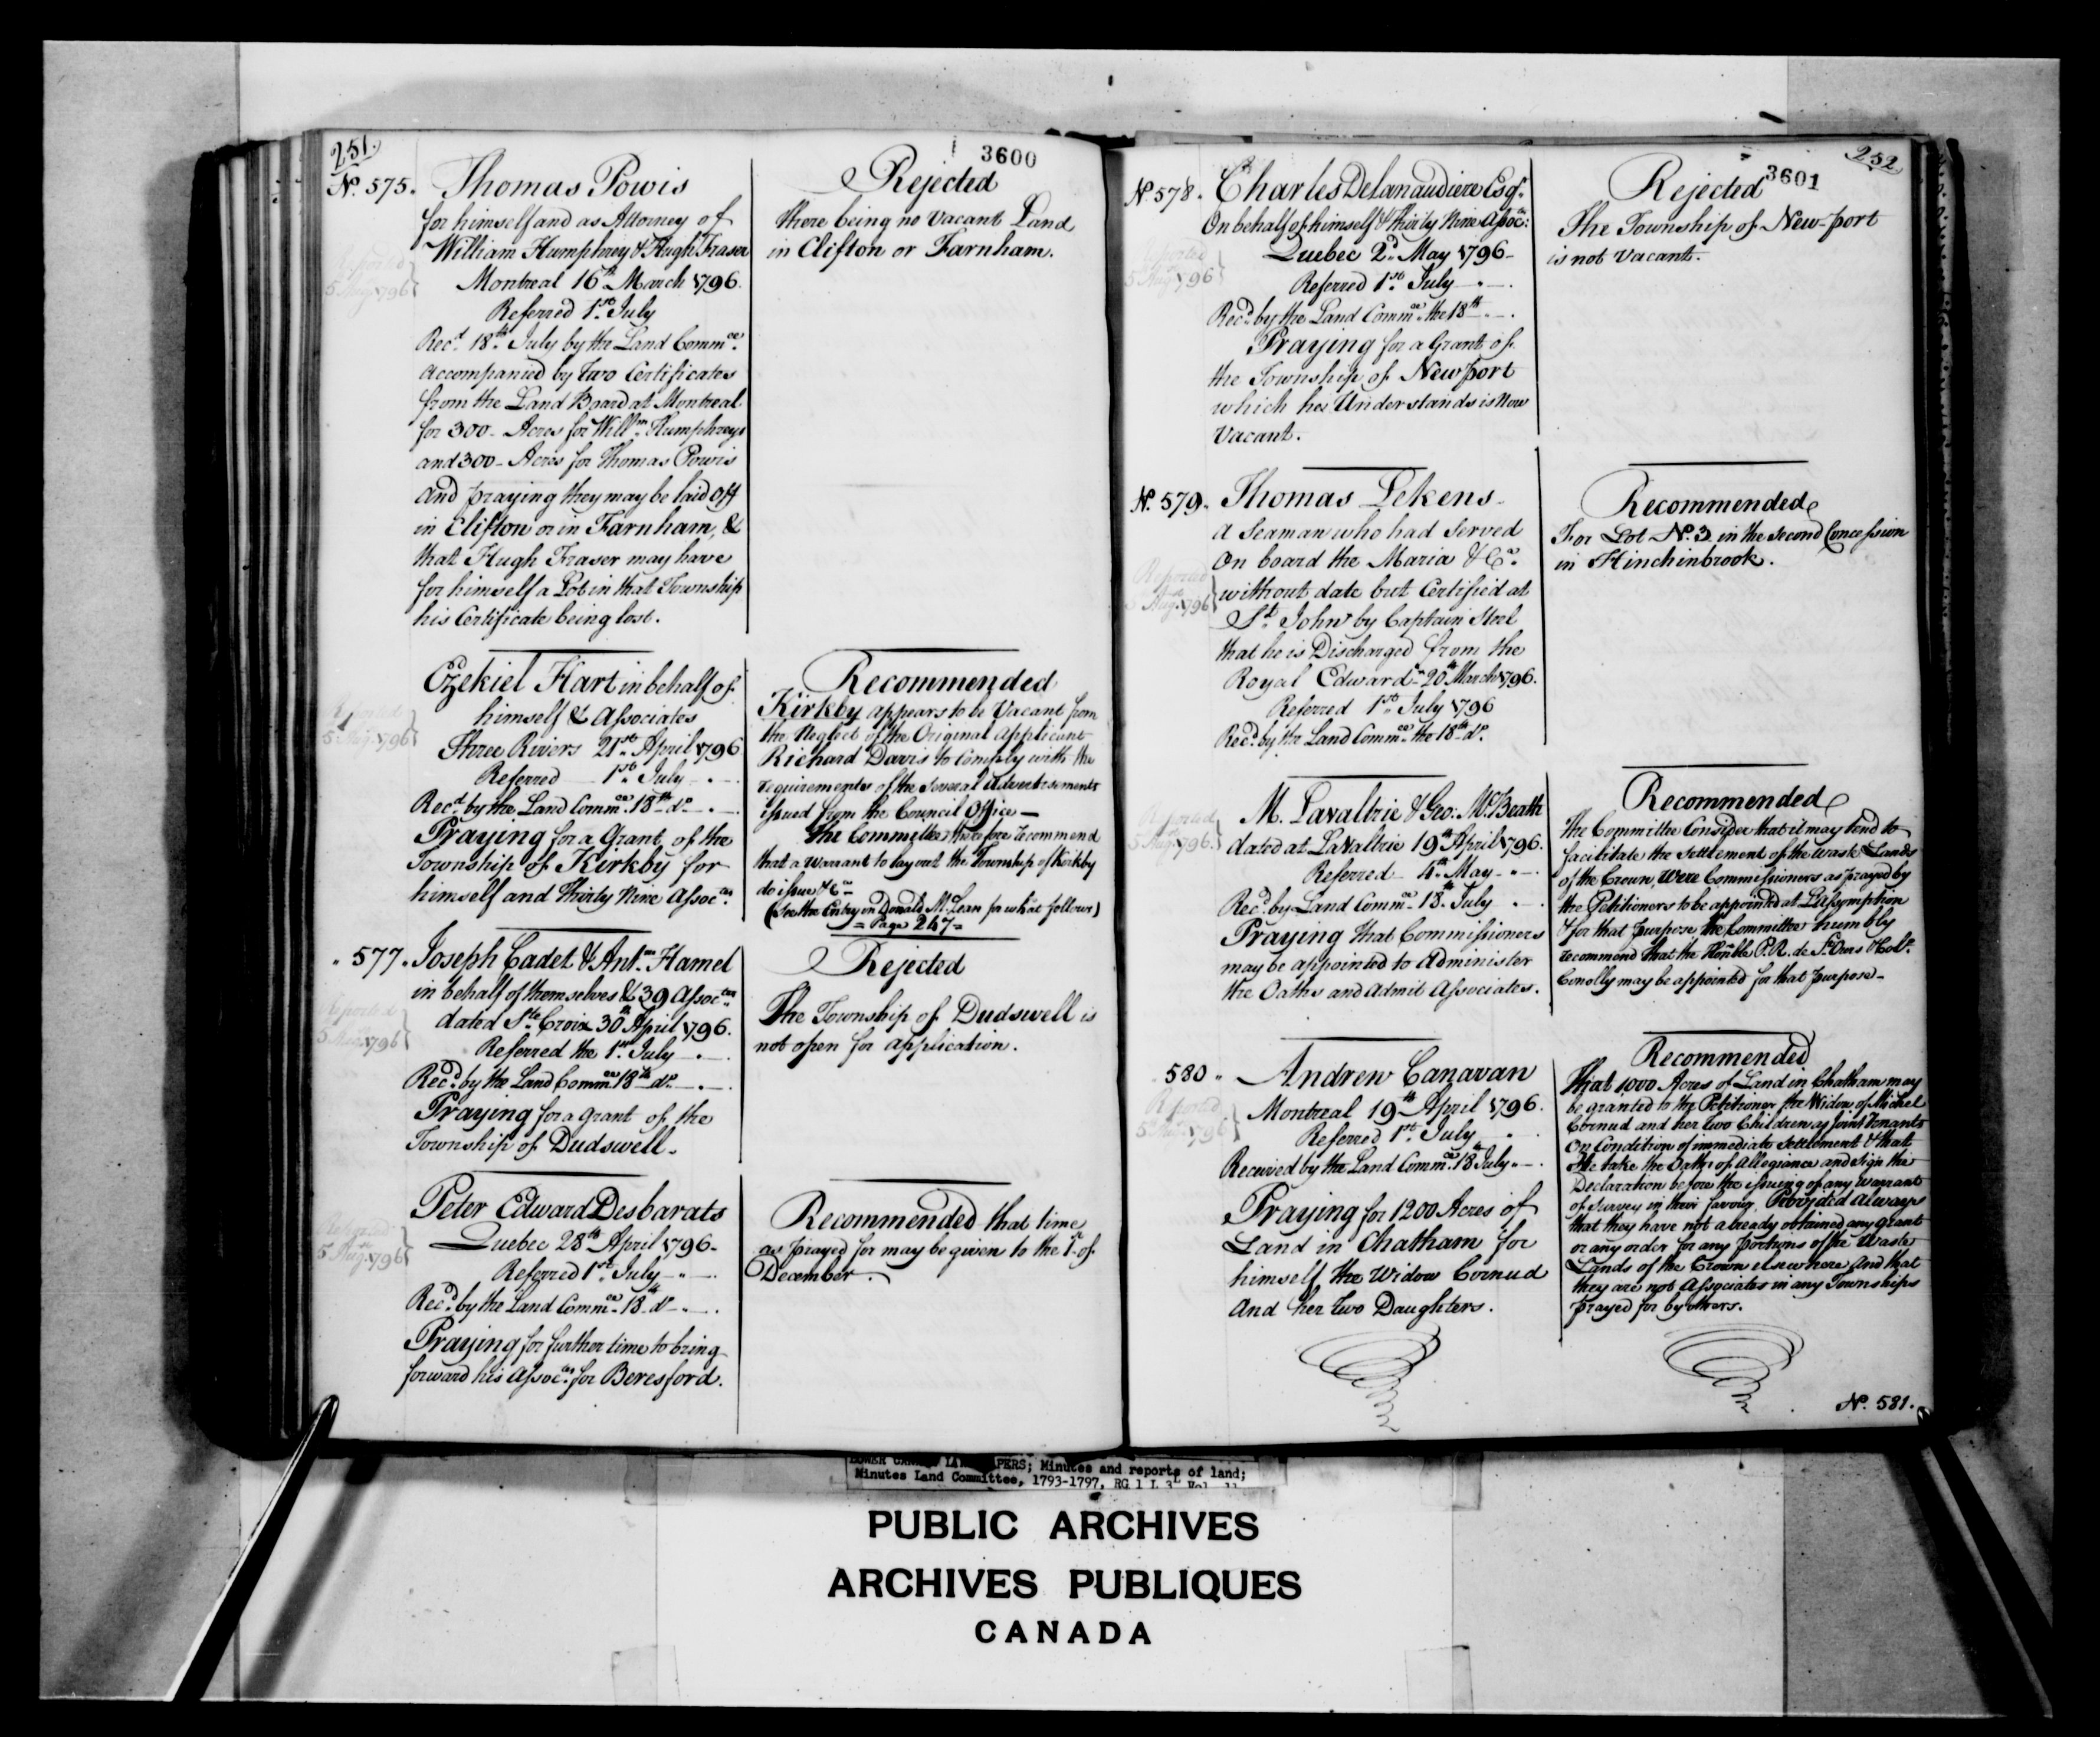 251.
3600
No. 575. Thomas Powis
for himself and as Attorney of
William Humphrey & Hugh Fraser
Montreal 16th March 1796.
Referred 1st July
Recd. 18th July by the Land Commee.
accompanied by two Certificates
from the Land Board at Montreal
for 300 - Acres for Willm. Humphreys
and 300 - Acres for Thomas Powis
and praying they may be laid off
in Clifton or in Farnham, &
that Hugh Fraser may have
for himself a Lot in that Township
his Certificate being lost.
Reported
5 Augt. 1796
Rejected
there being no Vacant Land
in Clifton or Farnham.
Ezekiel Hart in behalf of
himself & Associates
Three Rivers 21st April 1796
Referred 1st July
Recd. by the Land Commee. 18th do.
Praying for a Grant of the
Township of Kirkby for
himself and Thirty Nine Assoctes.
Reported
5 Augt. 1796
Recommended
Kirkby appears to be Vacant from
the Neglect of the Original applicant
Richard Davis to Comply with the
requirements of the several Advertisements
issued from the Council Office —
The Committee therefore recommend
that a Warrant to lay out the Township of Kirkby
do issue &ca.
(See the Entry on Donald McLean for what follows)
= Page 247 =
" 577. Joseph Cadet & Antne. Hamel
in behalf of themselves & 39 Assoctes.
dated Ste. Croix 30th April 1796.
Referred the 1st July
Recd. by the Land Commee. 18th do.
Praying for a grant of the
Township of Dudswell.
Reported
5 Augt. 1796
Rejected
The Township of Dudswell is
not open for application.
Peter Edward Desbarats
Quebec 28th April 1796.
Referred 1st July
Recd. by the Land Commee. 18th do.
Praying for further time to bring
forward his Assoctes. for Beresford.
Reported
5 Augt. 1796
Recommended that time
as prayed for may be given to the 1st of
December.
252
3601
No. 578. Charles Delanaudiere Esqr.
On behalf of himself & thirty Nine Assoc:
Quebec 2d. May 1796 -
Referred 1st July
Recd. by the Land Commee. the 18th
Praying for a Grant of
the Township of Newport
which he Understands is Now
Vacant.
Reported
5 Augt. 1796
Rejected
The Township of New-port
is not Vacant.
No. 579. Thomas Lekens
a Seaman who had served
On board the Maria &Ca.
without date but Certified at
St. Johns by Captain Steel
that he is Discharged from the
Royal Edward - 20th March 1796.
Referred 1st July 1796
Recd. by the Land Commee. the 18th do.
Reported
5 Augt. 1796
Recommended
For Lot No. 3 in the Second Concession
in Hinchinbrook.
M. Lavaltrie & Geo: McBeath
dated at LaValtrie 19th April 1796.
Referred 4th May
Recd. by Land Commee. 18th July
Praying that Commissioners
may be appointed to Administer
the Oaths and Admit Associates.
Reported
5 Augt. 1796.
Recommended
The Committee Consider that it may tend to
facilitate the Settlement of the Waste Lands
of the Crown, Were Commissioners as prayed by
the Petitioners to be appointed at L'Assomption
& for that purpose, the Committee humbly
recommend that the Honble P.R. de St. Ours & Coll.
Conolly may be appointed for that purpose -
580 " Andrew Canavan
Montreal 19th April 1796.
Referred 1st July
Received by the Land Commee. 18th July
Praying for 1200 Acres of
Land in Chatham for
himself, the Widow Cornud
and her two Daughters.
Reported
5 Augt. 1796
Recommended
That 1000 Acres of Land in Chatham may
be granted to the Petitioner the Widow of Michel
Cornud and her two Children as Joint Tenants
On Condition of immediate Settlement & that
He take the Oaths of Allegiance and Sign the
Declaration before the issuing of any Warrant
of Survey in their favour. Provided Always
that they have not already obtained any grant
or any order for any portions of the Waste
Lands of the Crown elsewhere And that
they are not Associates in any Townships
prayed for by others.
No. 581.
LOWER CANADA LAND PAPERS; Minutes and reports of land;
Minutes Land Committee, 1793-1797, RG 1 L 3L Vol. 11
PUBLIC ARCHIVES
ARCHIVES PUBLIQUES
CANADA